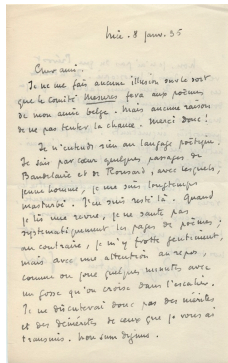 Nice. 8 janv. 35
Cher ami.
Je ne me fais aucune illusion sur le sort
que le Comité Mesures fera aux poèmes
de mon amie belge. Mais aucune raison
de ne pas tenter la chance. Merci donc !
Je n'entends rien au langage poétique.
Je sais par cœur quelques passages de
Baudelaire et de Ronsard, avec lesquels,
jeune homme, je me suis longtemps
masturbé. J'en suis resté là. Quand
je lis une revue, je ne saute pas
systématiquement les pages de poèmes ;
au contraire, je m'y frotte gentiment,
mais avec une attention au repos,
comme on joue quelques minutes avec
un gosse qu'on croise dans l'escalier.
Je ne discuterai donc pas des mérites
et des démérites de ceux que je vous ai
transmis. Non sum dignus.